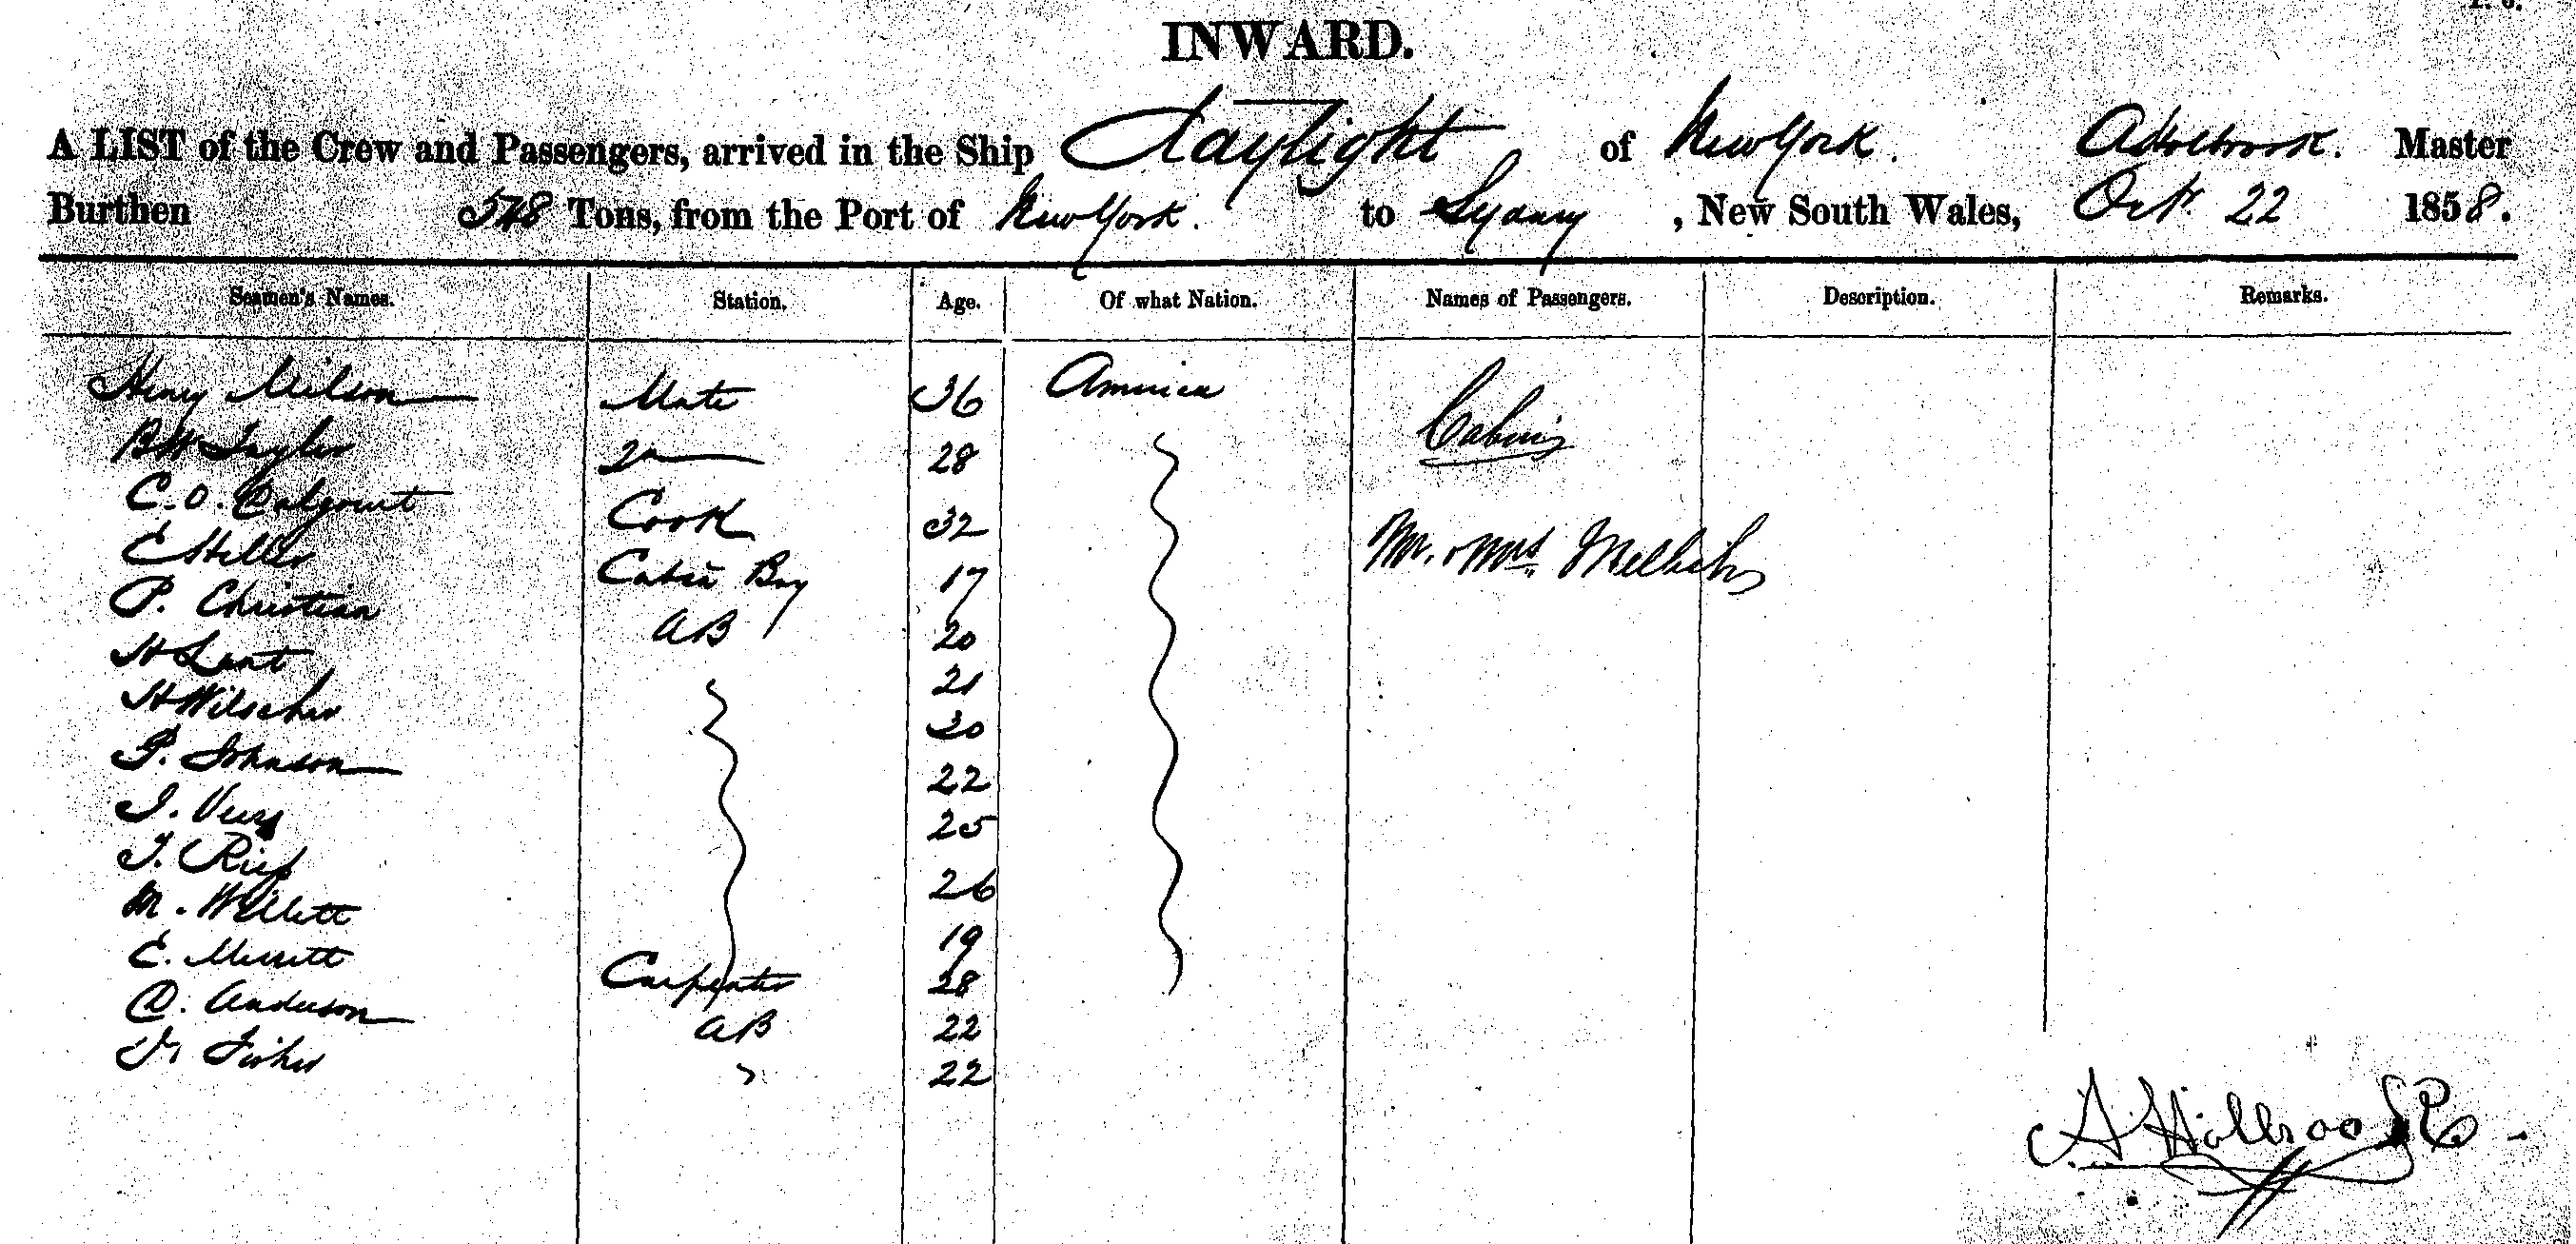 INWARD.
A LIST of the Crew and Passengers, arrived in the Ship Daylight of New York. A Holbrook. Master
Burthen 548 Tons, from the Port of New York. to Sydney, New South Wales, Oct. 22 1858.
Seamen's Names. Station. Age. Of what Nation. Names of Passengers. Description. Remarks.
Henry Neilson Mate 36 America
Cabin
BW Taylor 2 28
C. O. Cook 32
Mr. & Mrs.
C Heller Cabin Boy 17
P. Christian AB 20
H Lant 21
H 30
P. Johnson 22
J. 25
J. 26
M. Willett 19
E. Merritt Carpenter 28
A. Anderson AB 22
J. Fisher 22
A Holbrook